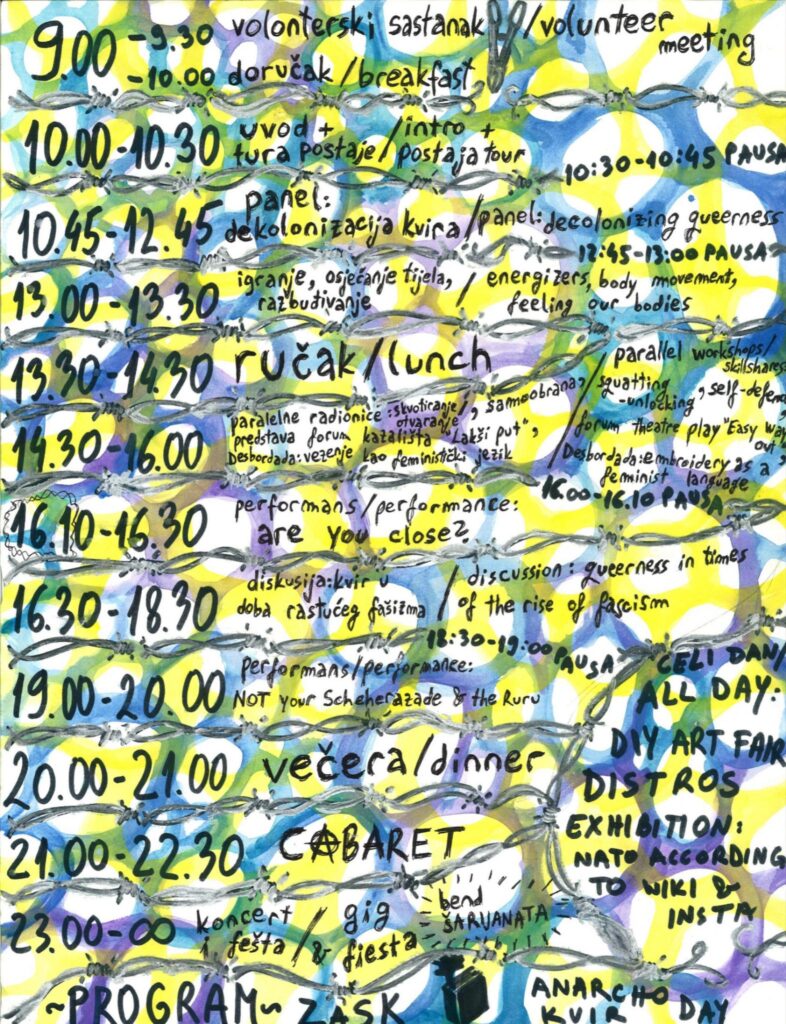 9.00 -9.30 volonterski sastanak / volunteer
meeting
-10.00 doručak / breakfast
10.00-10.30 uvod + / intro +
tura postaje / postaja tour
10:30-10:45 PAUSA
10.45-12.45 panel:
dekolonizacija kvira / panel: decolonizing queerness
12:45-13:00 PAUSA
13.00-13.30 igranje, osjećanje tijela, / energizers, body movement,
razbuđivanje feeling our bodies
13.30-14.30 ručak/lunch
14.30-16.00 paralelne radionice: skvotiranje/
otvaranje, samoobrana,
predstava forum kazališta "Lakši put",
Desbordada: vezenje kao feministički jezik
/ parallel workshops/
skillshares
squatting
-unlocking, self-defence
forum theatre play "Easy way
out",
Desbordada: embroidery as a
feminist language
16.00-16.10 PAUSA
16.10-16.30 performans/performance:
are you close?
16.30-18.30 diskusija: kvir u / discussion: queerness in times
doba rastućeg fašizma / of the rise of fascism
18:30-19:00 PAUSA
19.00-20.00 performans/performance:
NOT your Scheherazade & the Ruru
20.00-21.00 večera/dinner
21.00-22.30 CABARET
23.00-∞ koncert / gig
i fešta / & fiesta
bend
ŠARUANATA
CELI DAN/
ALL DAY:
DIY ART FAIR
DISTROS
EXHIBITION:
NATO ACCORDING
TO WIKI &
INSTA
~PROGRAM~ ZASK
ANARCHO
KVIR DAY